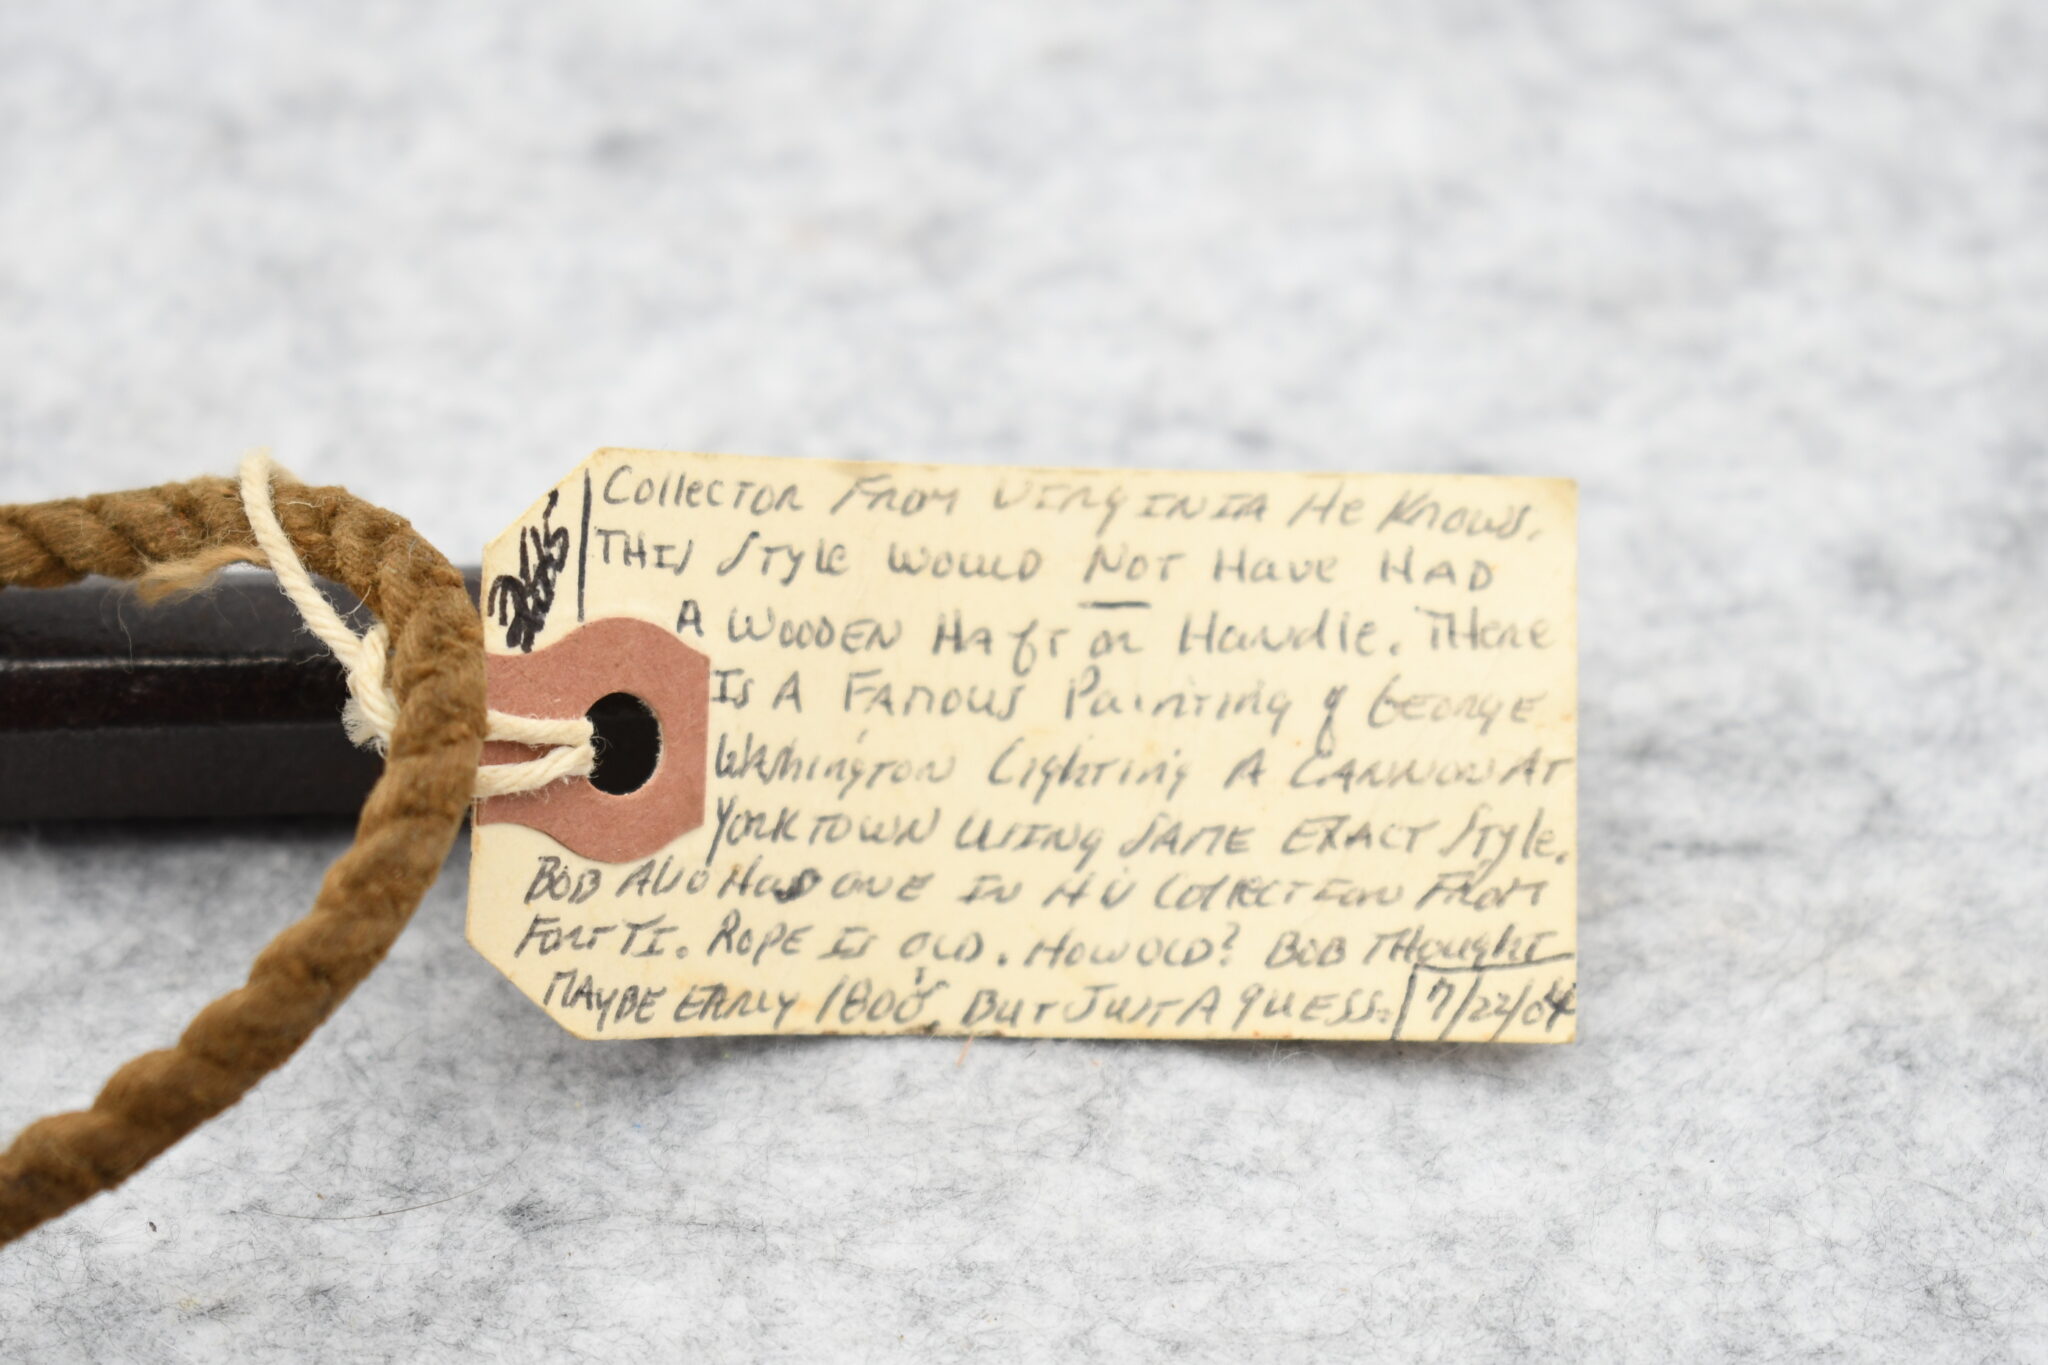 Collector From Virginia He Knows.
This Style would Not Have Had
A Wooden Haft or Handle. There
Is A Famous Painting of George
Washington Lighting A Cannon At
Yorktown using Same Exact Style.
Bob Also Has one in His Collection From
Fort Ti. Rope is old. How old? Bob Thought
Maybe Early 1800's But Just A guess. 7/22/04